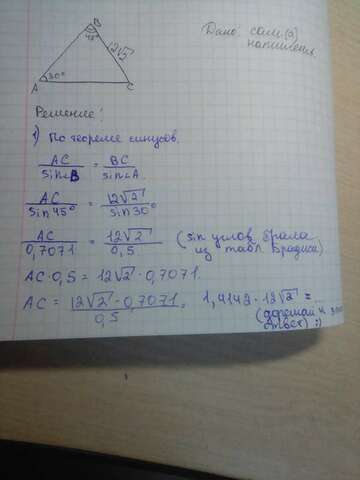 B
45°
12√2
A
30°
C
Дано: сам(а)
напишешь
Решение:
1) По теореме синусов.
AC/sin∠B = BC/sin∠A
AC/sin 45° = 12√2/sin 30°
AC/0,7071 = 12√2/0,5 (sin углов брала из табл. Брадиса)
AC · 0,5 = 12√2 · 0,7071
AC = 12√2 · 0,7071/0,5 = 1,4142 · 12√2 = ...
(дорешай и
ответ) :)